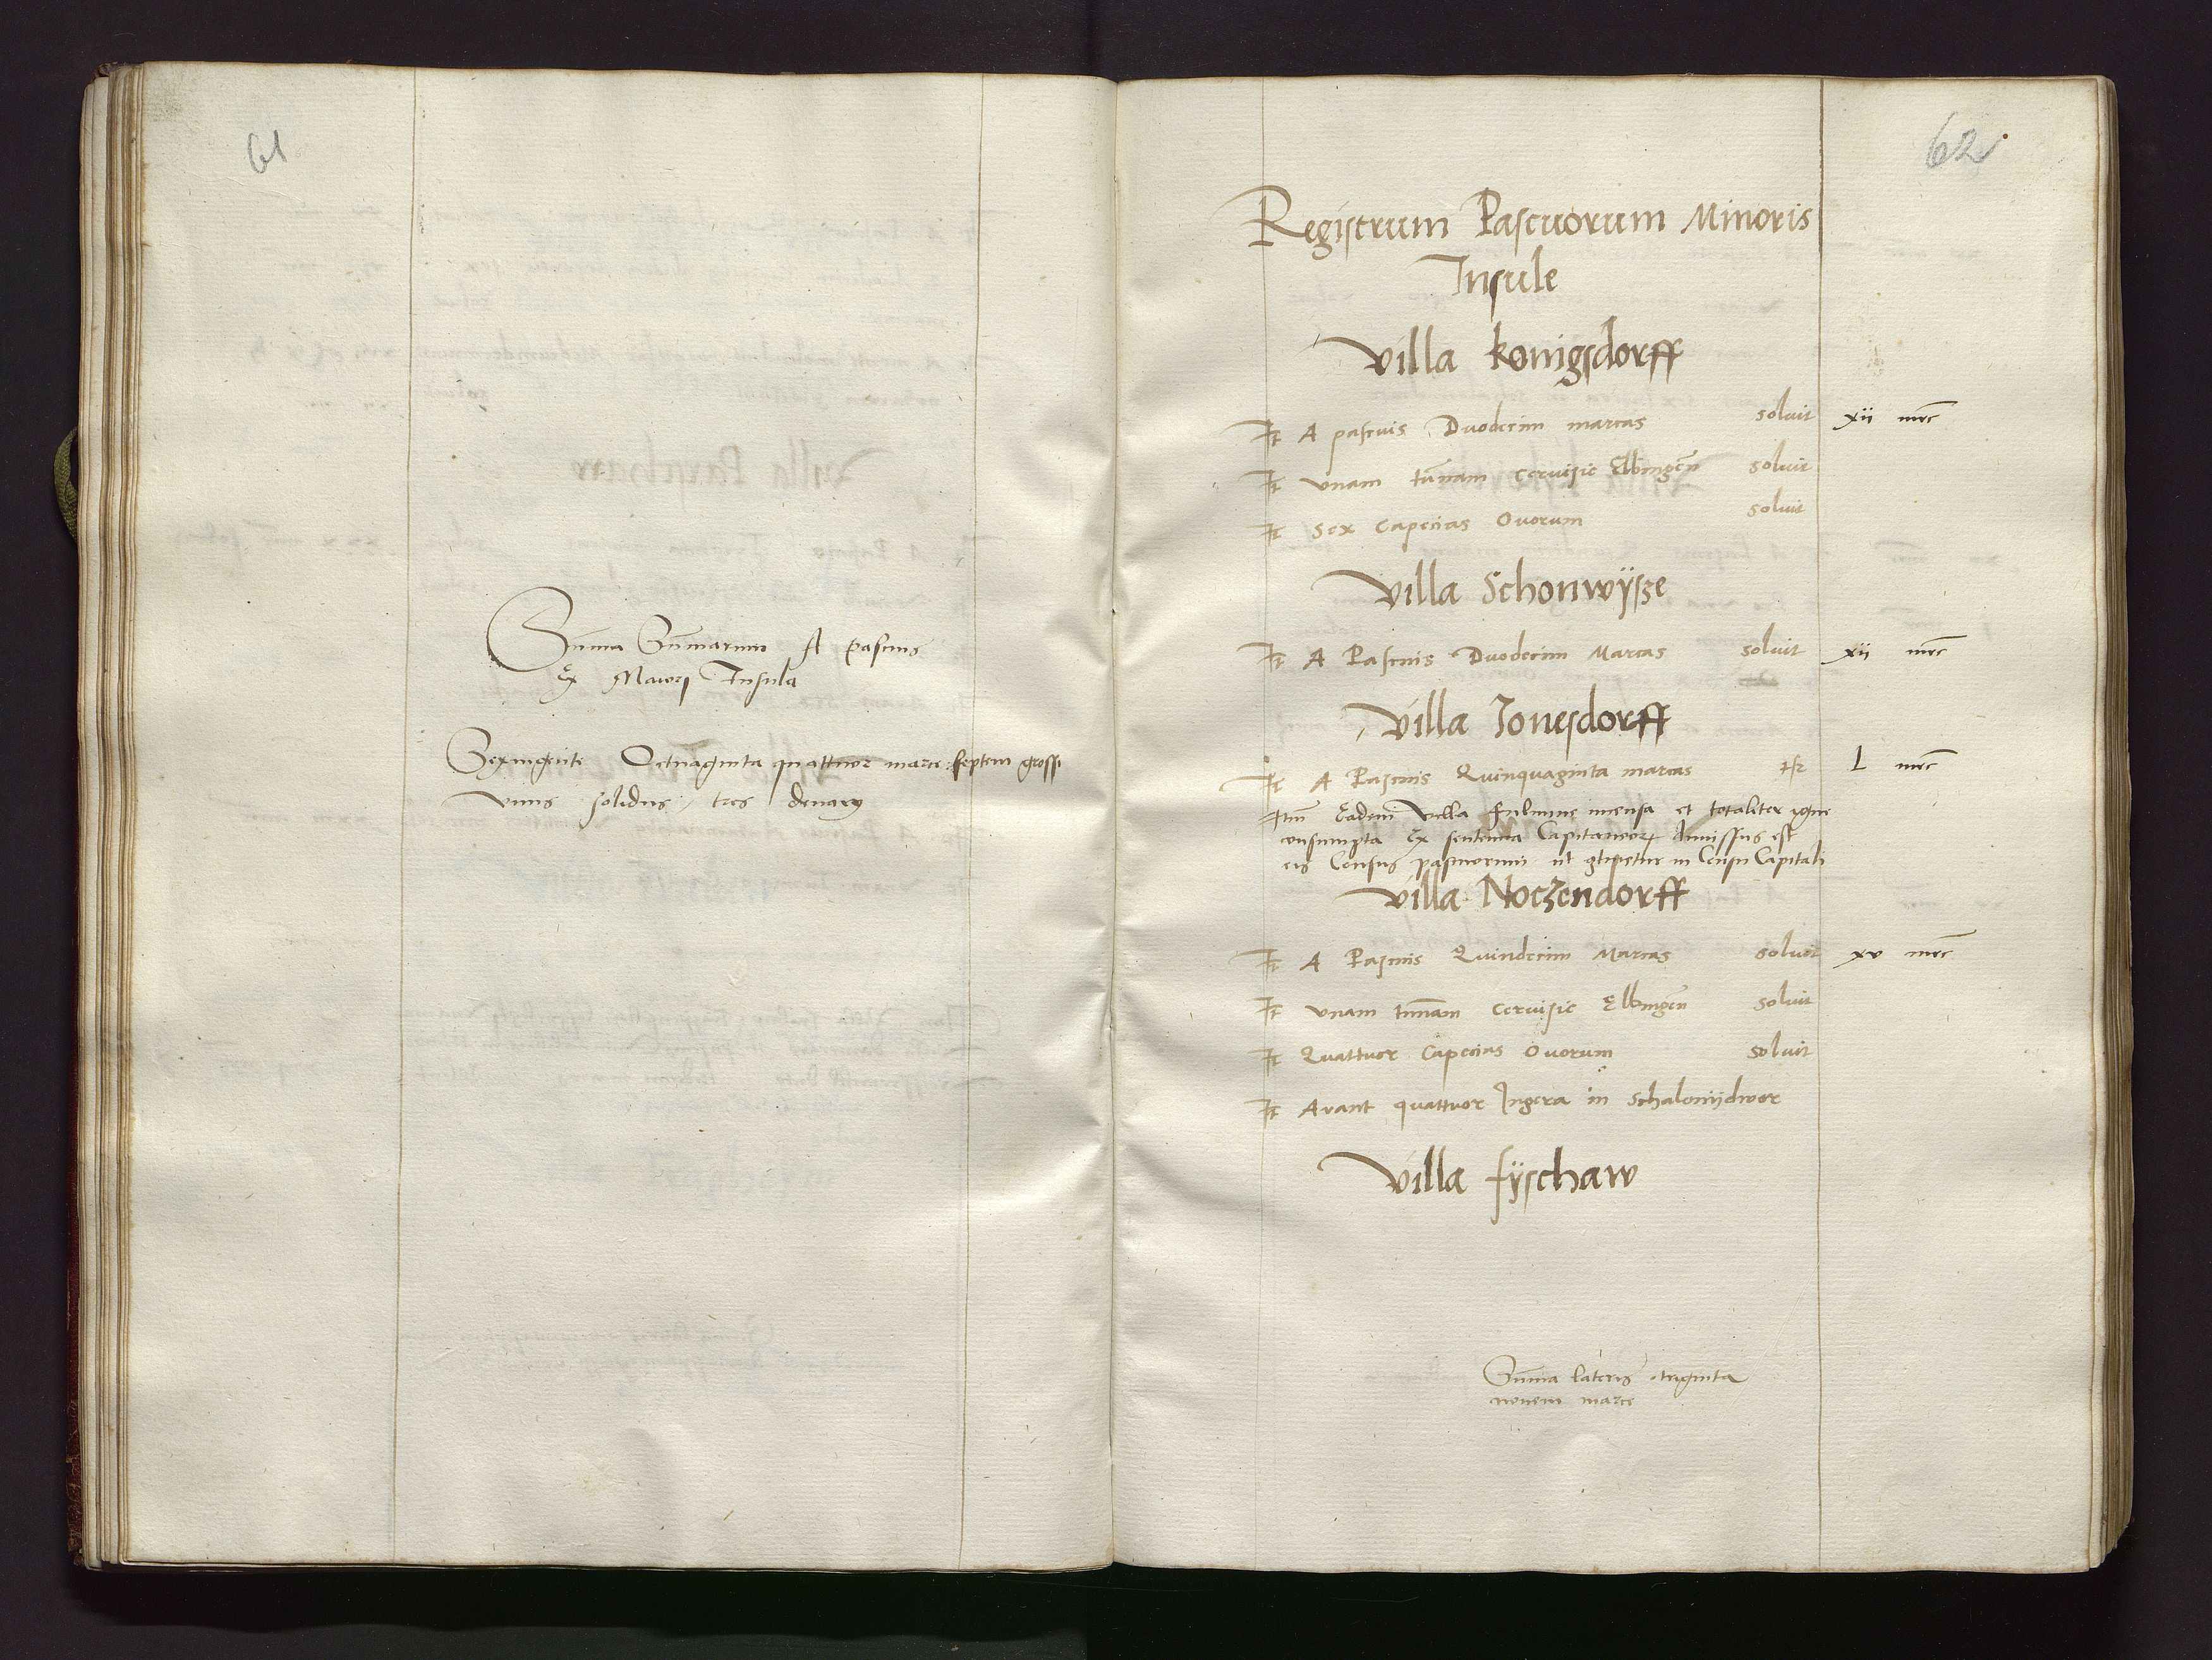 61
Sum̄a Sum̄arum A pascuis
Ex Maiori Insula
Sexingente Octuaginta quattuor marce septem grossi
vnus solidus tres denarij
62
Registrum Pascuorum Minoris
Insule
Villa Konigsdorff
It A pascuis Duodecim marcas soluit xii mrc
It vnam tun̄nam cervisie Elbingen̄ soluit
It Sex Capecias Ovorum soluit
Villa Schonwÿsze
It A Pascuis Duodecim Marcas soluit xii mrc
Villa Jonesdorff
It A Pascuis Quinquaginta marcas L mrc
Itm Eadem Villa fulmine incensa et totaliter igne
consumpta Ex sententia Capitaneorum Amissus est
eis Census pascuorum ut in Censu Capitali
Villa Noczendorff
It A Pascuis Quindecim Marcas soluit xv mrc
It vnam tunnam cervisie Elbingen̄ soluit
It Quattuor Capecias Ovorum soluit
It Arant quattuor Jugera in Schalowÿdwor
Villa fÿschaw
Sum̄a lateris triginta
novem marce